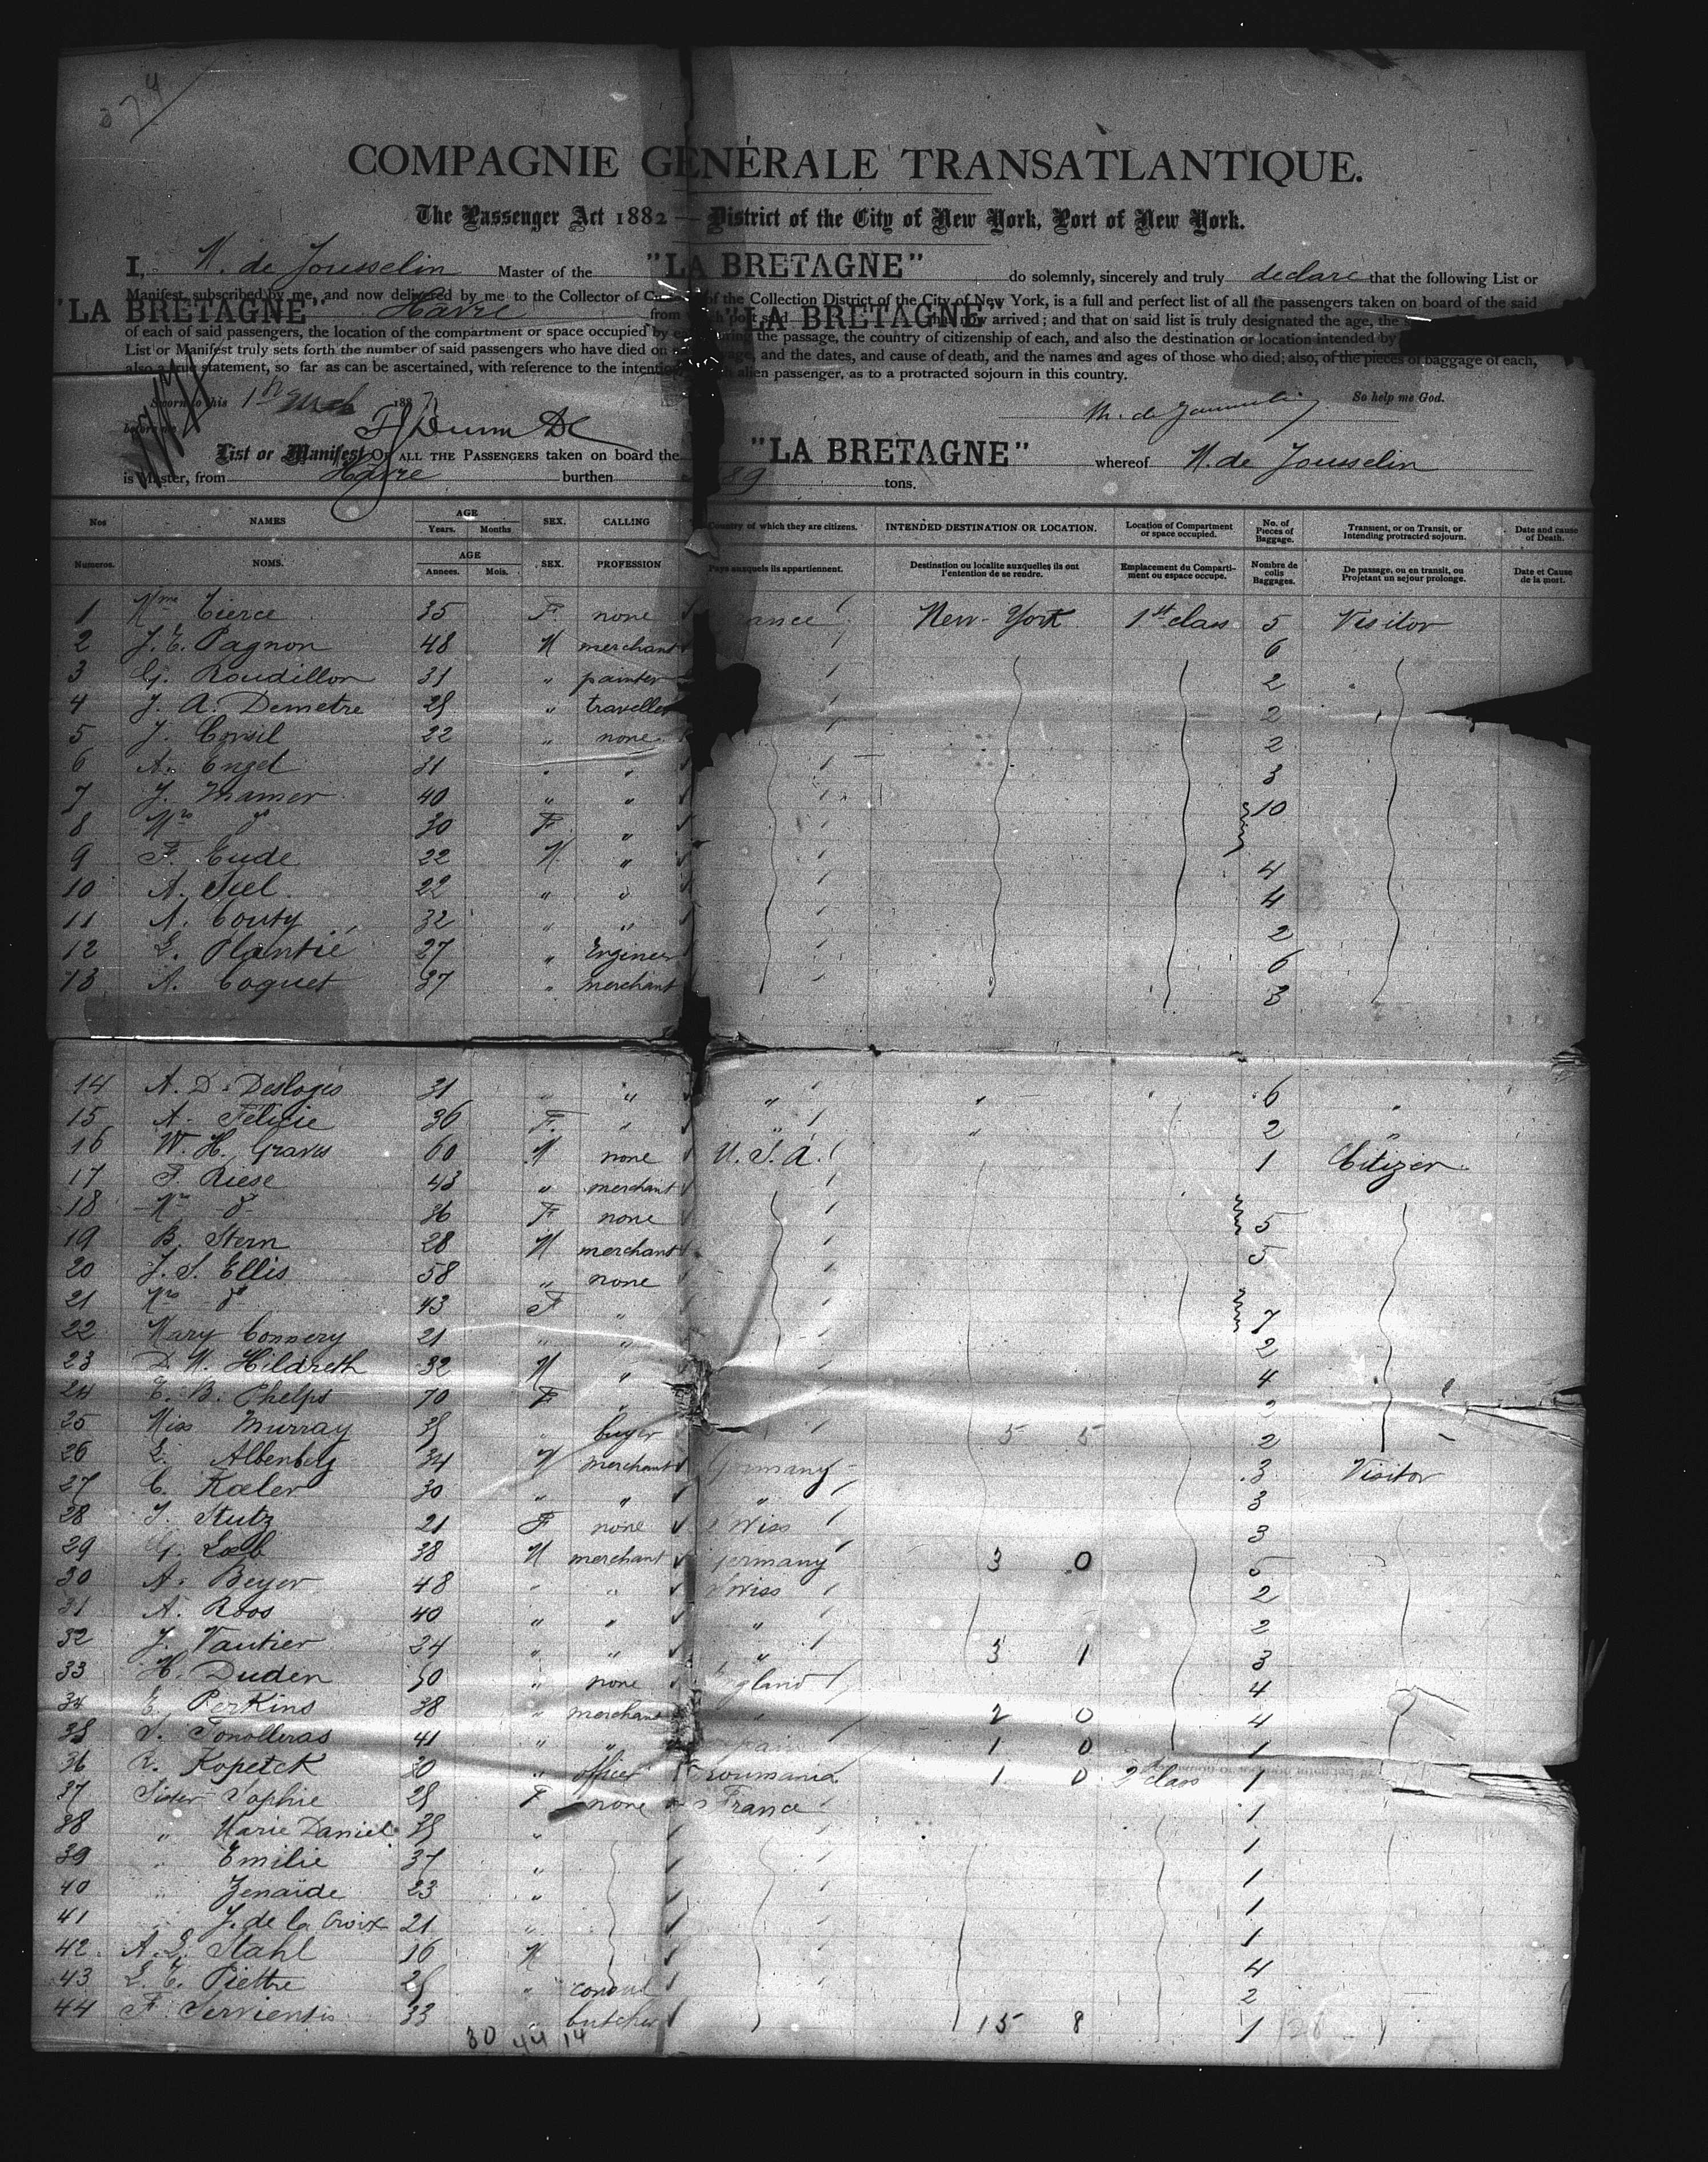 374
COMPAGNIE GÉNÉRALE TRANSATLANTIQUE.
The Passenger Act 1882 — District of the City of New York, Port of New York.
I, M. de Jousselin Master of the "LA BRETAGNE" do solemnly, sincerely and truly declare that the following List or
Manifest, subscribed by me, and now delivered by me to the Collector of of the Collection District of the City of New York, is a full and perfect list of all the passengers taken on board of the said
"LA BRETAGNE" Havre from which port said "LA BRETAGNE" has now arrived; and that on said list is truly designated the age, the
of each of said passengers, the location of the compartment or space occupied by during the passage, the country of citizenship of each, and also the destination or location intended by
List or Manifest truly sets forth the number of said passengers who have died on and the dates, and cause of death, and the names and ages of those who died; also, of the pieces of baggage of each,
also a true statement, so far as can be ascertained, with reference to the intention alien passenger, as to a protracted sojourn in this country.
Sworn to this 1st Mch 1887 M. de Jousselin So help me God.
before me
List or Manifest OF ALL THE PASSENGERS taken on board the "LA BRETAGNE" whereof M. de Jousselin
is Master, from Havre burthen 89 tons.
Nos NAMES AGE Years. Months SEX. CALLING Country of which they are citizens. INTENDED DESTINATION OR LOCATION. Location of Compartment or space occupied. No. of Pieces of Baggage. Transient, or on Transit, or Intending protracted sojourn. Date and cause of Death.
Numeros. NOMS. AGE Annees. Mois. SEX. PROFESSION Pays auxquels ils appartiennent. Destination ou localite auxquelles ils ont l'entention de se rendre. Emplacement du Comparti-ment ou espace occupe. Nombre de colis Baggages. De passage, ou en transit, ou Projetant un sejour prolonge. Date et Cause de la mort.
1 Mme Tierce 35 F none France New-York 1st class 5 Visitor
2 J. E. Pagnon 48 M merchant 6
3 G. Roudillon 31 " painter 2 "
4 J. A. Demetre 28 " traveller 2
5 J. Consil 22 " none 2
6 A. Engel 31 " " 3
7 J. Mamer 40 " " 10
8 Mrs do 30 F "
9 F. Eude 22 M " 4
10 A. Siel 22 " " 4
11 A. Couty 32 " " 2
12 L. Plantié 27 " Engineer 6
13 A. Coquet 37 " merchant 3
14 A. D. Desloges 31 " " " " 6 "
15 A. Félicie 36 F. " " " 2 "
16 W. H. Graves 60 M none U.S.A. 1 Citizen
17 F. Riese 43 " merchant
18 Mrs do 36 F none 5
19 B. Stern 28 M merchant 5
20 J. S. Ellis 58 " none
21 Mrs do 43 F " 7
22 Mary Connery 21 " " 2
23 D. M. Hildreth 32 M " 4
24 E. B. Phelps 70 F " 2
25 Miss Murray 35 " buyer 5 5 2
26 L. Albenberg 34 M merchant Germany 3 Visitor
27 C. Kaeler 30 " " " 3
28 J. Stutz 21 F none Swiss 3
29 G. Loeb 38 M merchant Germany 3 0 5
30 A. Beyer 48 " " Swiss 2
31 A. Roos 40 " " " 2
32 J. Vautier 24 " " " 3 1 3
33 H. Duden 50 " none England 4
34 E. Perkins 38 " merchant " 2 0 4
35 J. Fonolleras 41 " " Spain 1 0 1
36 R. Kopetck 30 " officer Roumania 1 0 2d class 1
37 Sister Sophie 28 F none France 1
38 " Marie Daniel 38 " 1
39 " Emilie 37 " 1
40 " Zenaïde 23 " 1
41 " J. de la Croix 21 " 1
42 A. L. Stahl 16 M 4
43 L. E. Piettre 28 " consul 2
44 F. Servientis 33 " butcher 15 8 1
30 44 14